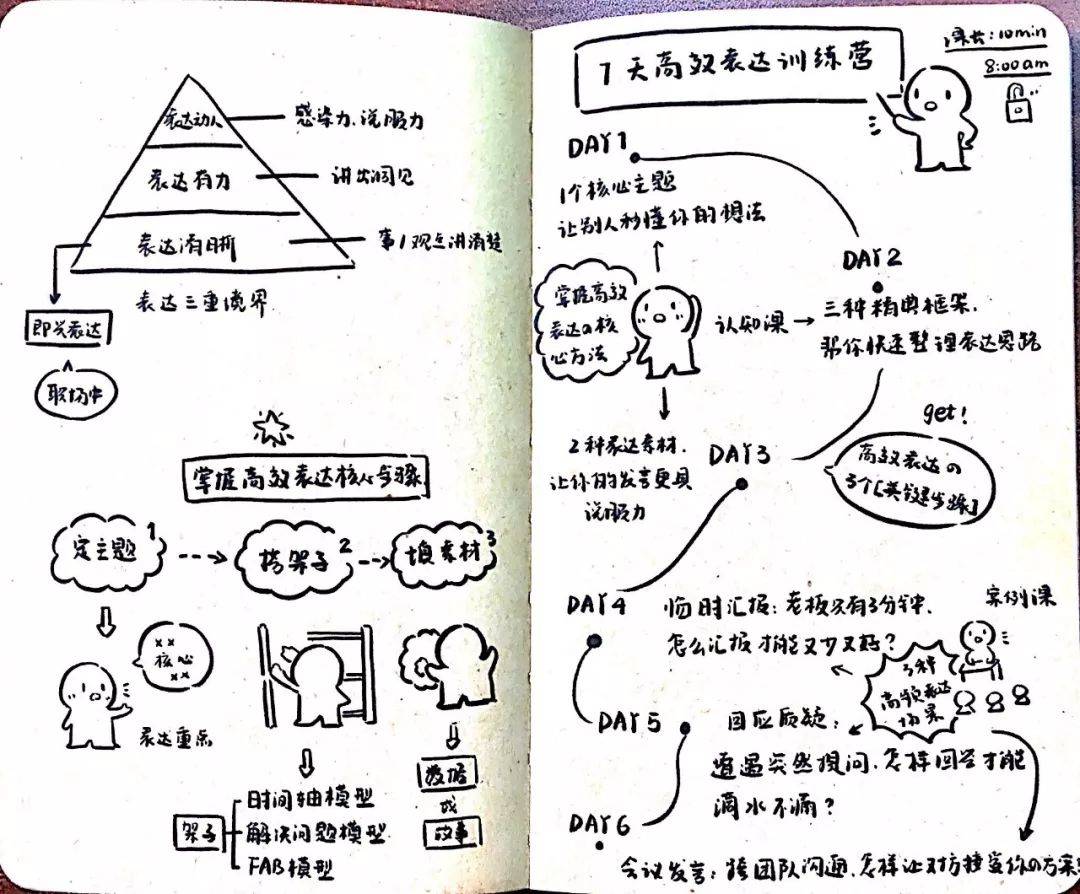 表达动人
感染力、说服力
表达有力
讲出洞见
表达清晰
事/观点讲清楚
表达三重境界
即兴表达
职场中
掌握高效表达核心步骤
定主题 1
搭架子 2
填素材 3
核心
表达重点
架子
时间轴模型
解决问题模型
FAB模型
数据
或
故事
7天高效表达训练营
课长:10min
8:00am
DAY1
1个核心主题
让别人秒懂你的想法
DAY2
三种精典框架,
帮你快速整理表达思路
掌握高效
表达の核
心方法
认知课
2种表达素材,
让你的发言更具
说服力
DAY3
get!
高效表达の
3个[关键步骤]
DAY4
临时汇报:老板只有3分钟,
怎么汇报才能又少又好?
案例课
3种
高频表达
场景
DAY5
回应质疑:
遭遇突然提问,怎样回答才能
滴水不漏?
DAY6
会议发言:跨团队沟通,怎样让对方接受你の方案